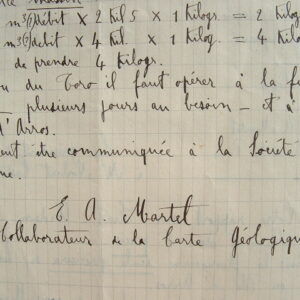 m³(?) débit × 2 Kil 5 × 1 Kilogr. = 2 Kilog
m³(?) débit × 4 Kil. × 1 Kilog. = 4 Kilo
de prendre 4 Kilogs.
ou du Toro il faut opérer à la f
plusieurs jours au besoin — et à
d'Arros.
ent être communiquée à la Société
me.
E. A. Martel
Collaborateur de la Carte Géologique